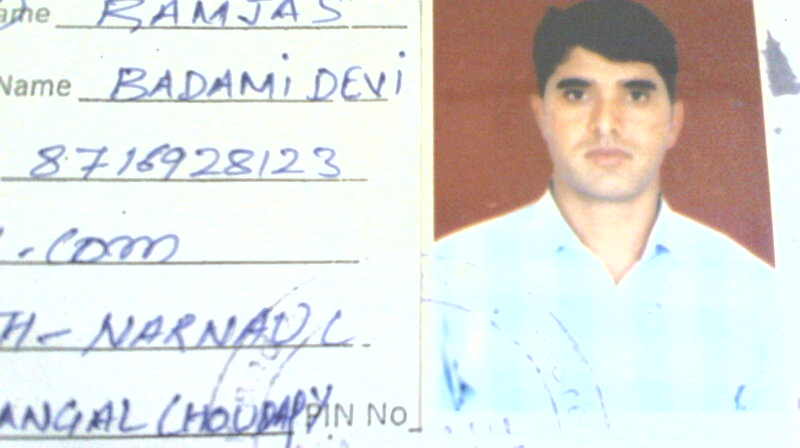 ame RAMJAS
Name BADAMI DEVI
8716928123
.com
H- NARNAUL
ANGAL CHOUDARY PIN No